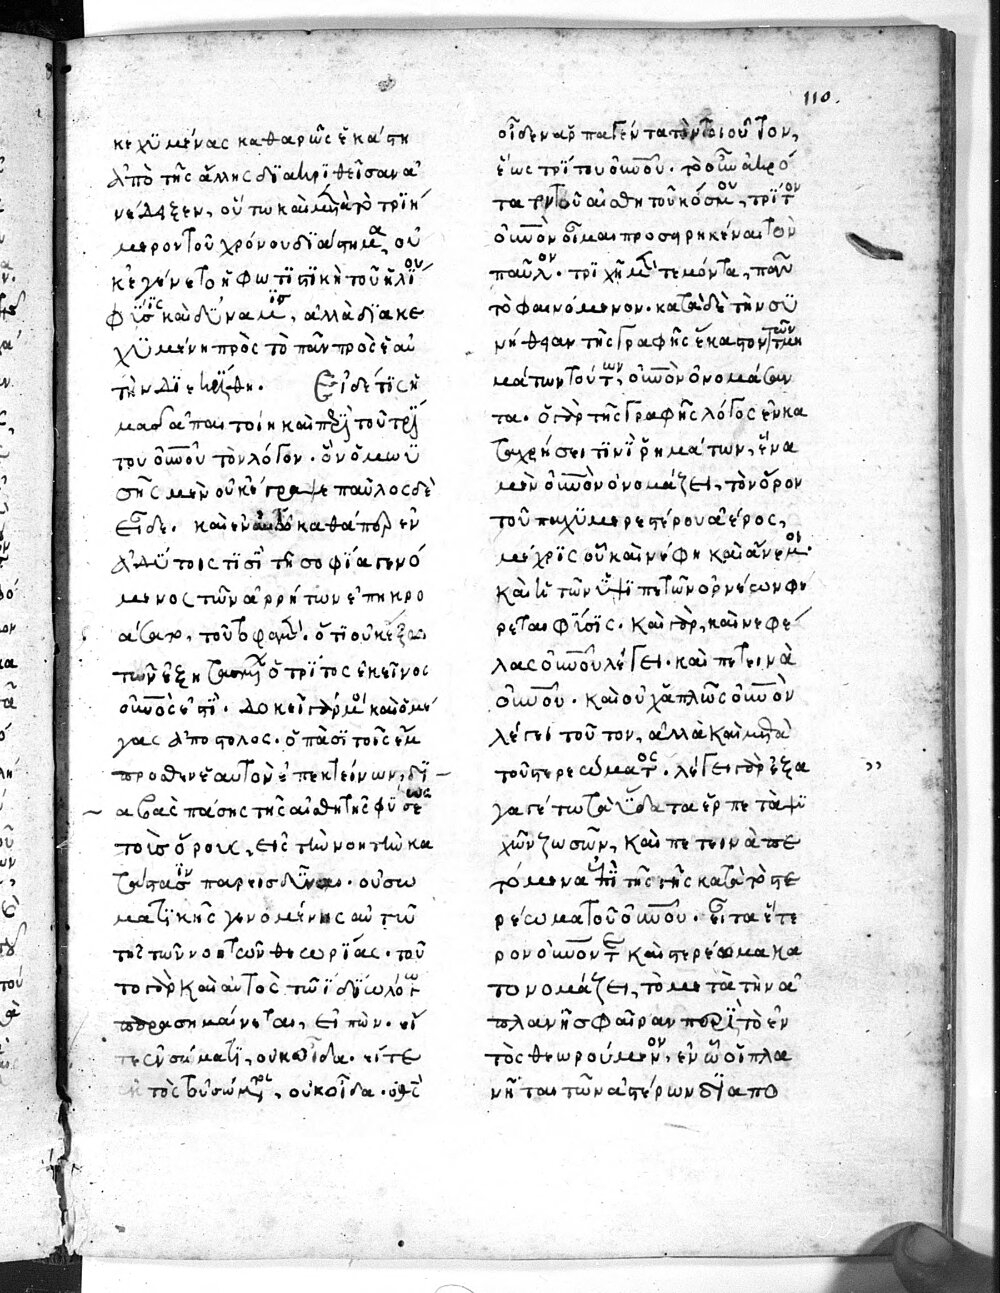 110.
κεχϋμένας καθαρῶς ἑκάστη
ἀπὸ τῆς ἄλλης διακριθεῖσαν ἀ
νέδειξεν, οὕτω καὶ μετὰ τὸ τριή
μερον τοῦ χρόνου διάστημα, οὐ
κ ἐγένετο ἡ φωτιστικὴ τοῦ ἡλίου
φύσις καὶ δύναμις, ἀλλὰ διακε
χϋμένη πρὸς τὸ πᾶν πρὸς ἑαυ
τὴν διεκρίθη. Εἰ δέ τις ἡ
μᾶς ἀπαιτοίη καὶ περὶ τοῦ τρί
του οὐρανοῦ τὸν λόγον. ὃν ὁ μωϋ
σῆς μὲν οὐκ ἔγραψε παῦλος δὲ
εἶδε. καὶ ἐν αὐτῷ καθάπερ ἐν
ἀδύτοις τισὶ τῆς σοφίας γενό
μενος τῶν ἀρρήτων ἐπηκρο
άσατο, τοῦτο φαμέν. ὅτι οὐκ ἔξω
τῶν ἐξητασμένων ὁ τρίτος ἐκεῖνος
οὐρανός ἐστι. δοκεῖ γάρ μοι καὶ ὁ μέ
γας ἀπόστολος. ὁ πᾶσι τοῖς ἔμ
προσθεν ἑαυτὸν ἐπεκτείνων, δι
αβὰς πάσης τῆς αἰσθητῆς φύσεως
τοῖς ὅροις, εἰς τὴν νοητὴν κα
τάστασιν παρεισδῦναι. οὐ σω
ματικῆς γενομένης αὐτῷ
τῆς τῶν νοητῶν θεωρίας. τοῦ
το γὰρ καὶ αὐτὸς τῷ ἰδίῳ λόγῳ
παρασημαίνεται, εἰπών. εἴ
τε ἐν σώματι, οὐκ οἶδα. εἴτε
ἐκτὸς τοῦ σώματος, οὐκ οἶδα. ὁ θεὸς
οἶδεν ἁρπαγέντα τὸν τοιοῦτον,
ἕως τρίτου οὐρανοῦ. τὸ οὖν ἀκρό
τατον τοῦ αἰσθητοῦ κόσμου, τρίτον
οὐρανὸν οἶμαι προσειρηκέναι τὸν
παῦλον. τριχῆ μὲν τεμόντα, πᾶν
τὸ φαινόμενον. κατὰ δὲ τὴν συ
νήθειαν τῆς γραφῆς ἕκαστον τῶν τμη
μάτων τούτων, οὐρανὸν ὀνομάσαν
τα. ὁ γὰρ τῆς γραφῆς λόγος ἐν κα
ταχρήσει τινὶ ῥημάτων, ἕνα
μὲν οὐρανὸν ὀνομάζει, τὸν ὅρον
τοῦ παχυμερεστέρου ἀέρος,
μέχρις οὗ καὶ νέφη καὶ ἄνεμοι.
καὶ ἡ τῶν ὑψιπετῶν ὀρνέων φέ
ρεται φύσις. καὶ γὰρ, καὶ νεφέ
λας οὐρανοῦ λέγει. καὶ πετεινὰ
οὐρανοῦ. καὶ οὐχ ἁπλῶς οὐρανὸν
λέγει τοῦτον, ἀλλὰ καὶ μετὰ
τοῦ στερεώματος. λέγει γὰρ ἐξα
γαγέτω τὰ ὕδατα ἑρπετὰ ψυ
χῶν ζωσῶν, καὶ πετεινὰ πε
τόμενα ἐπὶ τῆς γῆς κατὰ τὸ στε
ρέωμα τοῦ οὐρανοῦ. εἶτα ἕτε
ρον οὐρανόν τε καὶ στερέωμα κα
τονομάζει, τὸ μετὰ τὴν ἀ
πλανῆ σφαῖραν περὶ τὸ ἐν
τὸς θεωρούμενον, ἐν ᾧ οἱ πλα
νῆται τῶν ἀστέρων διαπο